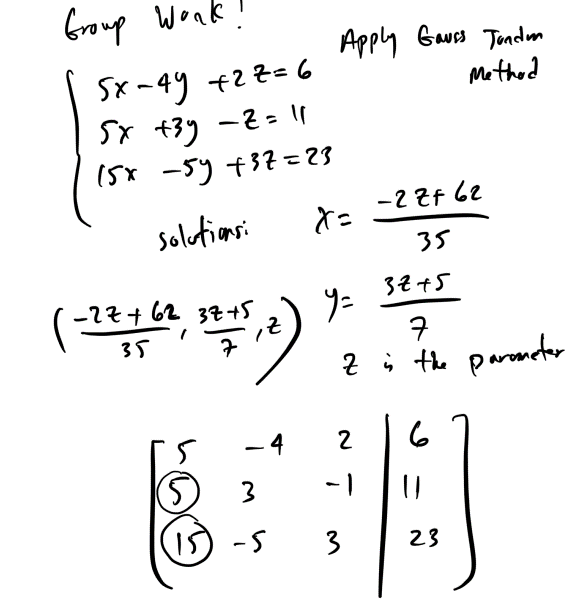 Group Work!
Apply Gauss Jordan
Method
5x - 4y + 2z = 6
5x + 3y - z = 11
15x - 5y + 3z = 23
solutions:
x = \frac{-2z + 62}{35}
y = \frac{3z + 5}{7}
(\frac{-2z + 62}{35}, \frac{3z + 5}{7}, z)
z is the parameter
5 -4 2 | 6
5 3 -1 | 11
15 -5 3 | 23